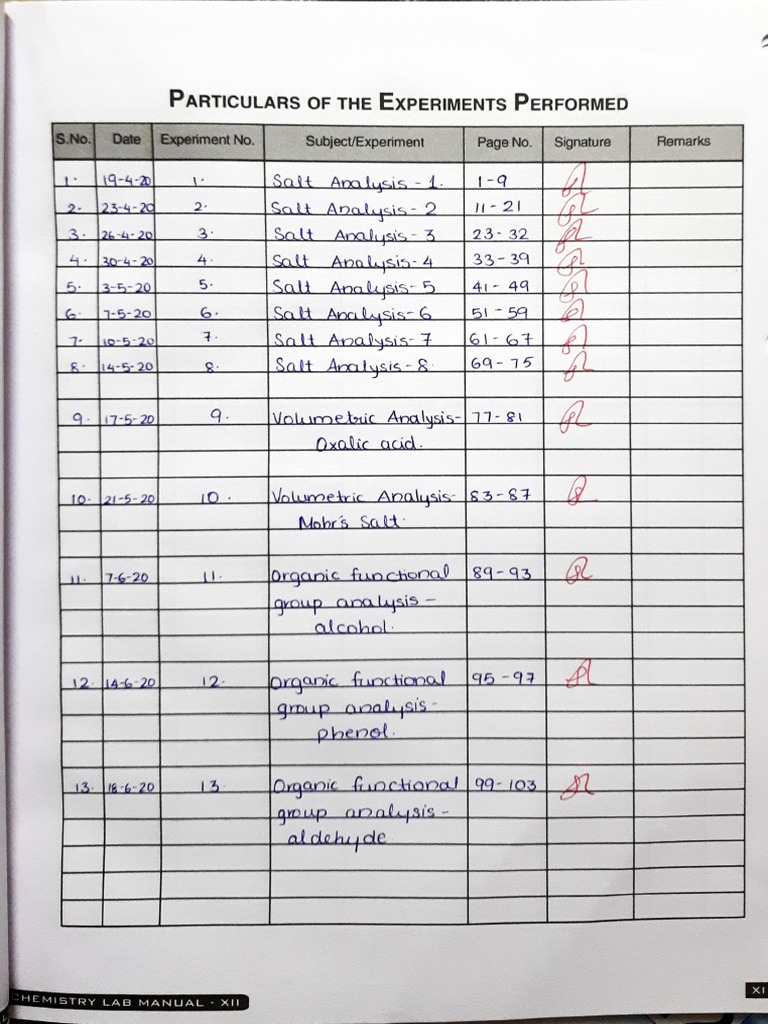 PARTICULARS OF THE EXPERIMENTS PERFORMED
S.No. Date Experiment No. Subject/Experiment Page No. Signature Remarks
1. 19-4-20 1. Salt Analysis - 1. 1-9
2. 23-4-20 2. Salt Analysis - 2 11-21
3. 26-4-20 3. Salt Analysis - 3 23-32
4. 30-4-20 4. Salt Analysis - 4 33-39
5. 3-5-20 5. Salt Analysis - 5 41-49
6. 7-5-20 6. Salt Analysis - 6 51-59
7. 10-5-20 7. Salt Analysis - 7 61-67
8. 14-5-20 8. Salt Analysis - 8. 69-75
9. 17-5-20 9. Volumetric Analysis- 77-81
Oxalic acid.
10. 21-5-20 10. Volumetric Analysis- 83-87
Mohr's Salt.
11. 7-6-20 11. Organic functional 89-93
group analysis -
alcohol.
12. 14-6-20 12. Organic functional 95-97
group analysis-
phenol.
13. 18-6-20 13. Organic functional 99-103
group analysis -
aldehyde.
CHEMISTRY LAB MANUAL - XII
XI